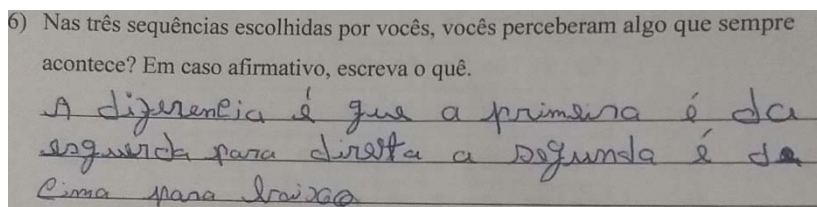 6) Nas três sequências escolhidas por vocês, vocês perceberam algo que sempre
acontece? Em caso afirmativo, escreva o quê.
A diferencia é que a primeira é da
esquerda para direita a segunda é de
cima para baixo